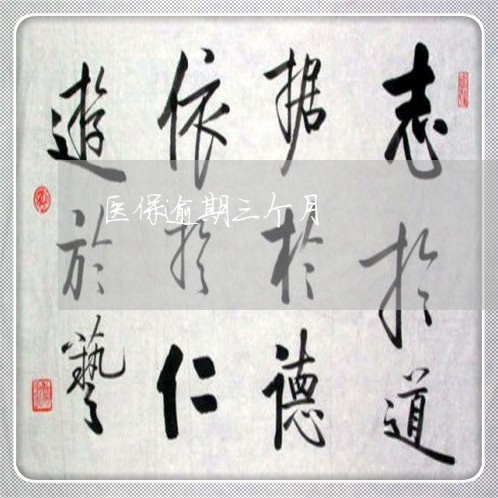 志於道
据於德
依於仁
遊於藝
医保逾期三个月